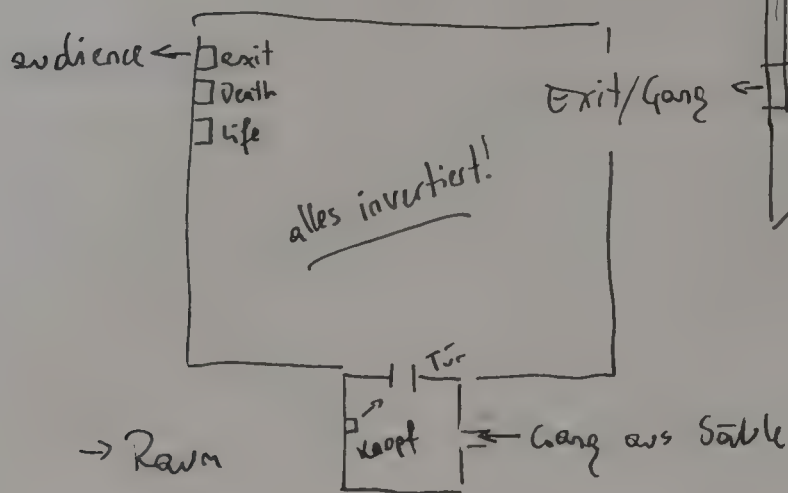 audience ← exit
Death
Life
Exit/Gang ←
alles invertiert!
Tür
Knopf
← Gang aus Säule
→ Raum